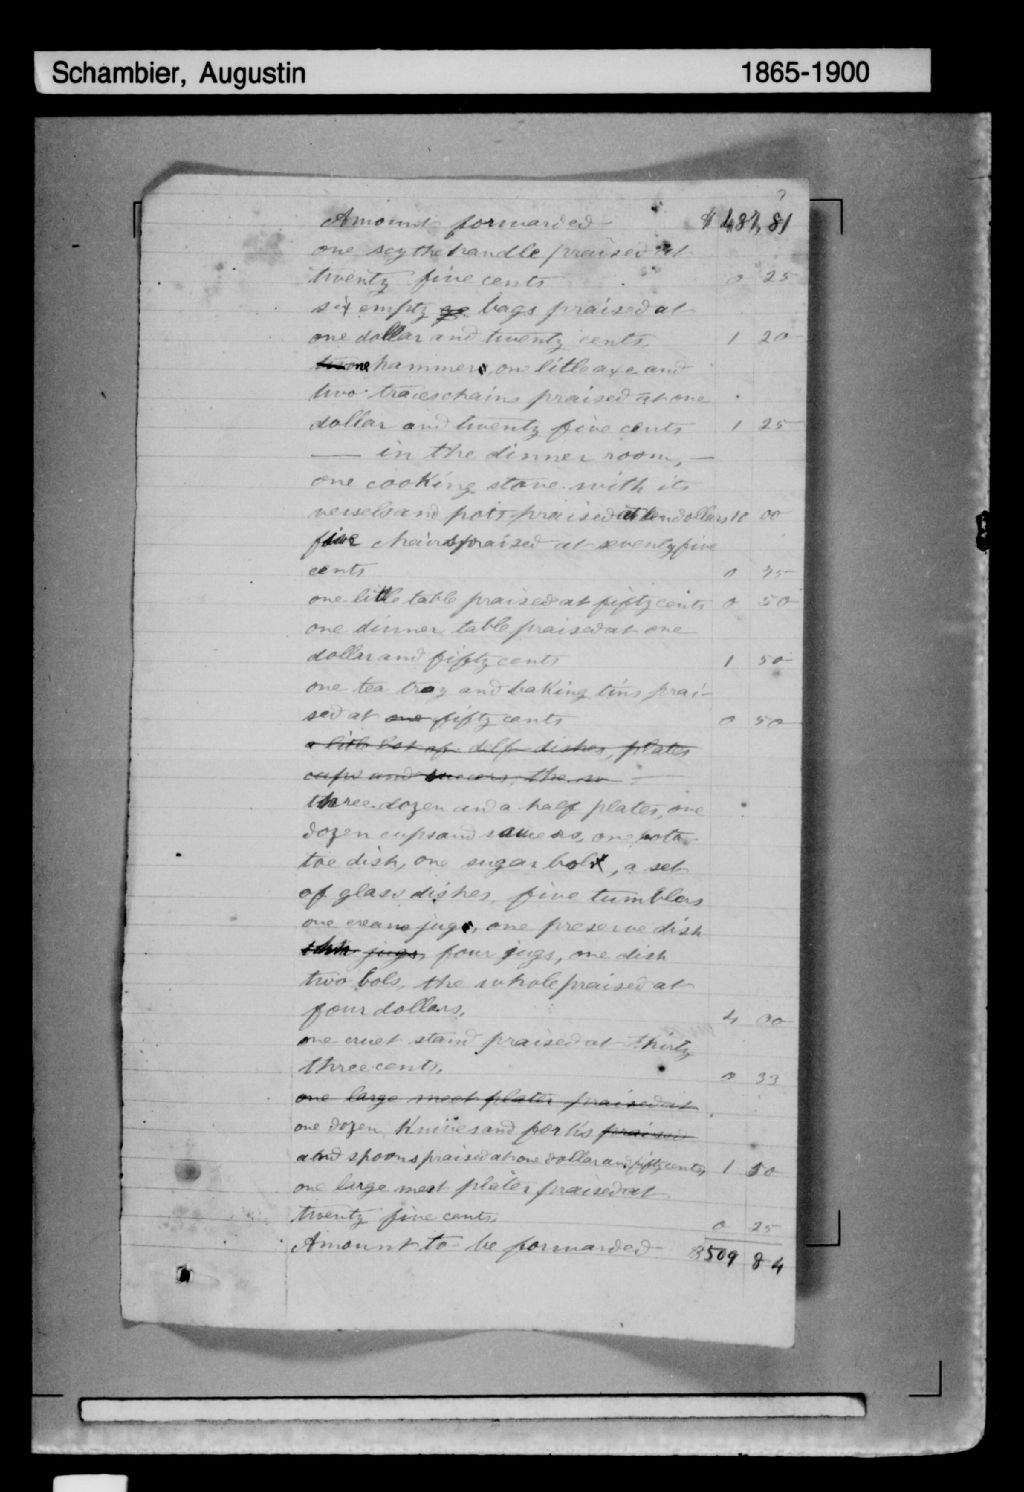 Schambier, Augustin 1865-1900
Amount forwarded $ 487,81
one scythe handle praised at
twenty five cents 0 25
six empty bags praised at
one dollar and twenty cents, 1 20
one hammer, one litle axe and
two traceschains praised at one
dollar and twenty five cents 1 25
— in the dinner room, —
one cooking stove with its
vessels and pots praised at ten dollars 10 00
five chairs praised at seventy five
cents 0 75
one little table praised at fifty cents 0 50
one dinner table praised at one
dollar and fifty cents 1 50
one tea tray and baking tins prai-
sed at one fifty cents 0 50
a litle lot of delf dishes, plates
cups and saucers, the so
three dozen and a half plates, one
dozen cups and saucers, one pota-
toe dish, one sugar bol, a set
of glass dishes, five tumblers
one cream jug, one preserve dish
jugs, four jugs, one dish
two bols, the whole praised at
four dollars, 4 00
one cruet stand praised at thirty
three cents, 0 33
one large meat plater praised at
one dozen Knives and forks praised
and spoons praised at one dollar and fifty cents, 1 50
one large meat plater praised at
twenty five cents, 0 25
Amount to be forwarded $509 84